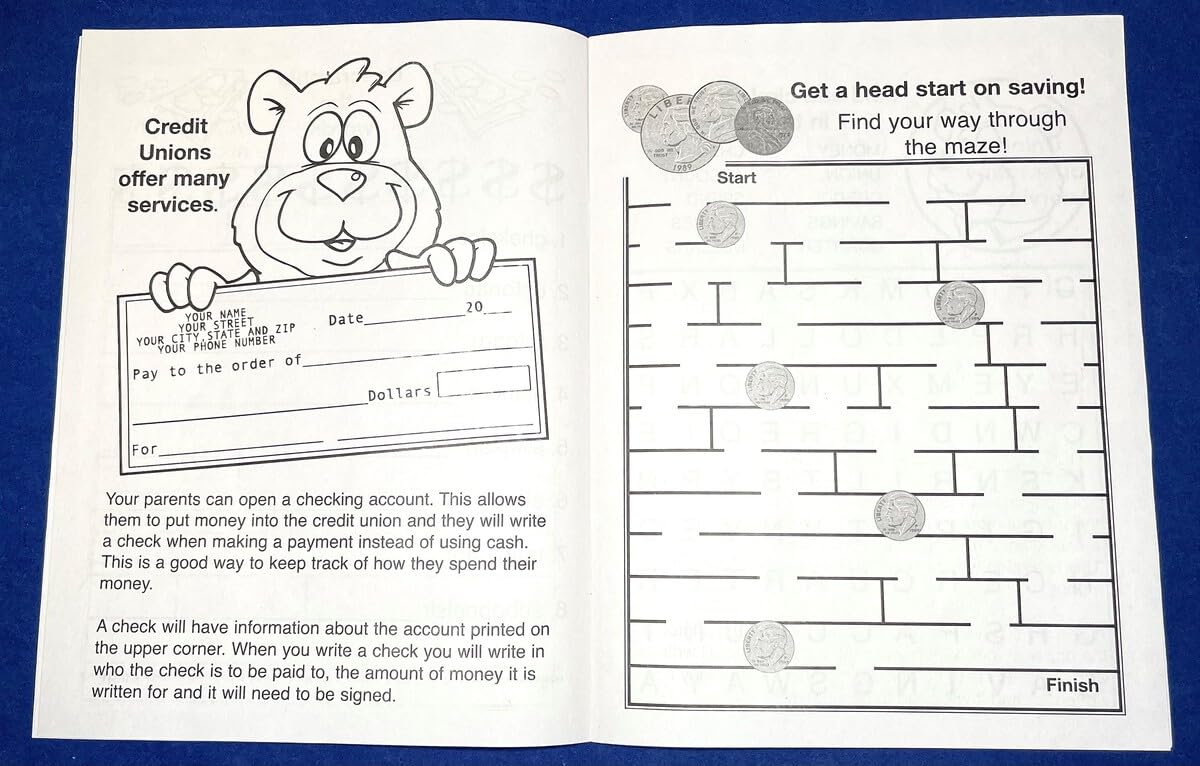 Credit
Unions
offer many
services.
YOUR NAME
YOUR STREET
YOUR CITY STATE AND ZIP
YOUR PHONE NUMBER
Date 20
Pay to the order of
Dollars
For
Your parents can open a checking account. This allows
them to put money into the credit union and they will write
a check when making a payment instead of using cash.
This is a good way to keep track of how they spend their
money.
A check will have information about the account printed on
the upper corner. When you write a check you will write in
who the check is to be paid to, the amount of money it is
written for and it will need to be signed.
Get a head start on saving!
Find your way through
the maze!
LIBERTY
1989
Start
LIBERTY
LIBERTY
LIBERTY
LIBERTY
Finish